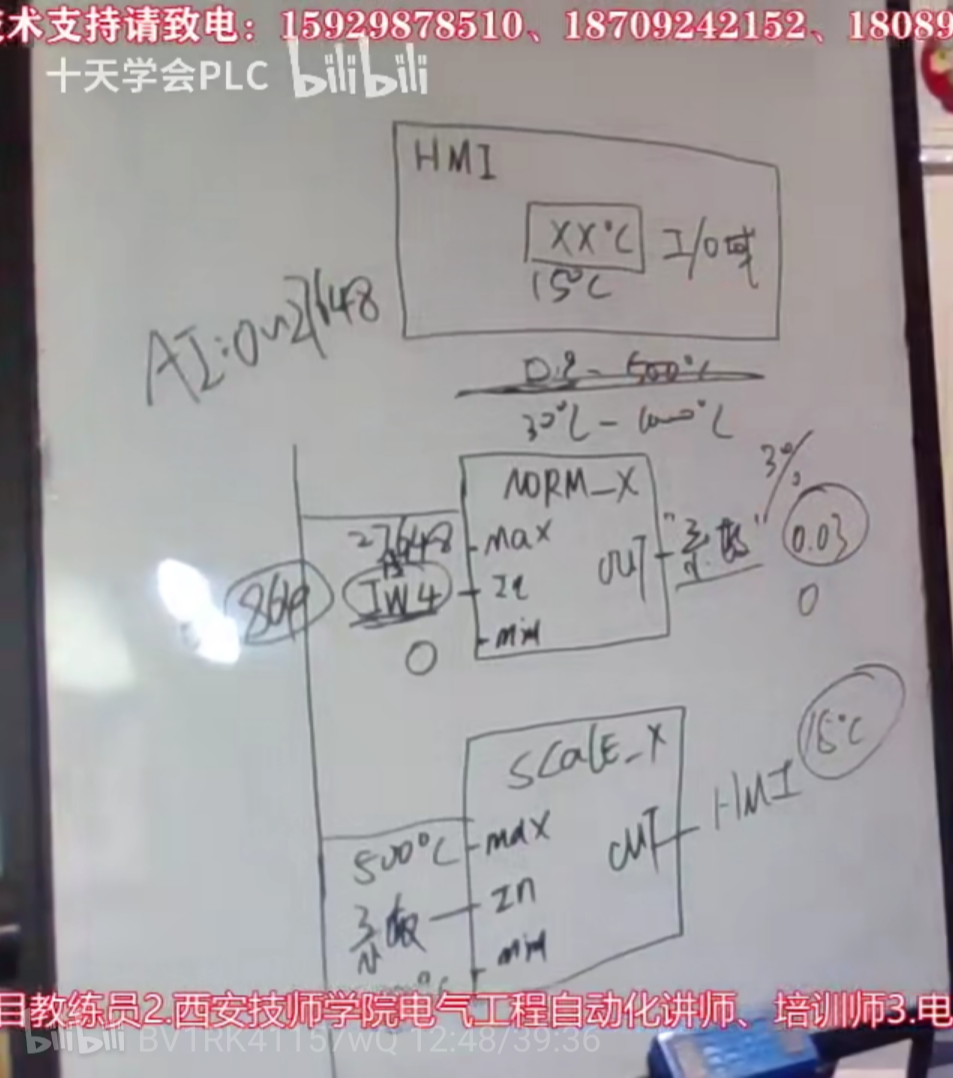 术支持请致电：15929878510、18709242152、18089
十天学会PLC bilibili
HMI
XX°C I/O域
15°C
AI:0~27648
0°C - 500°C
30°C - 1000°C
NORM_X
3%
27648 max
OUT "系数" 0.03
849 IW4 In
0
min
0
SCALE_X
15°C
HMI
500°C max
OUT
系数 In
min
目教练员2.西安技师学院电气工程自动化讲师、培训师3.电
bilibili BV1RK41157WQ 12:48/39:36